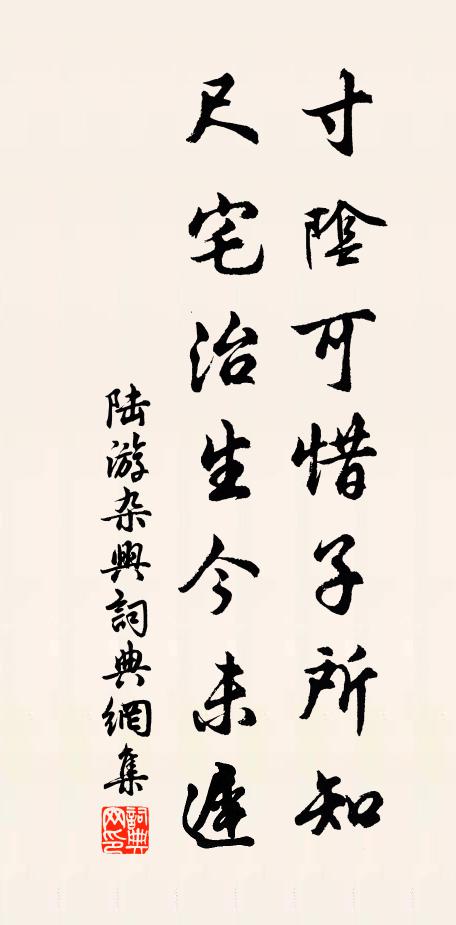 寸陰可惜子所知
尺宅治生今未遲
陆游杂興詞典網集
詞典网印